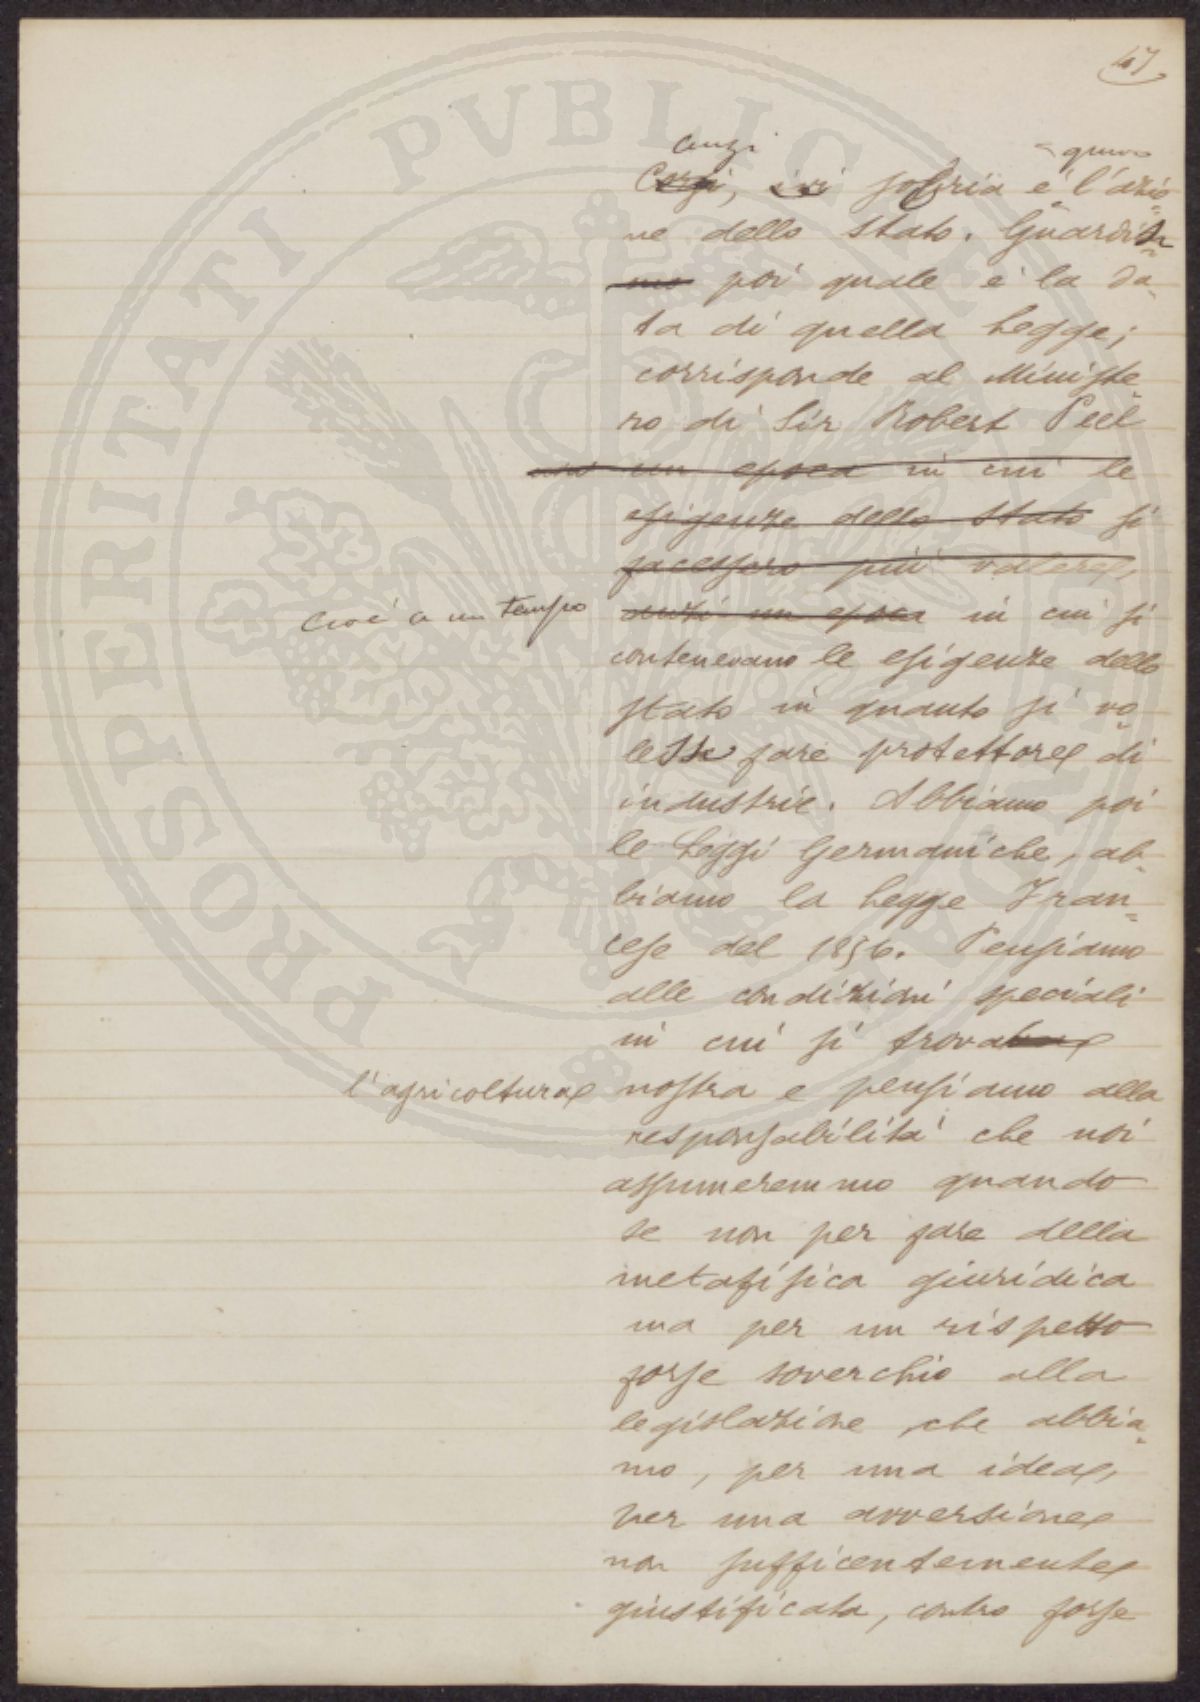 47
anzi
quivi
Corsi, ivi sobria è l'azio=
ne dello Stato. Guardisi
mo poi quale è la da=
ta di quella Legge;
corrisponde al Ministe=
ro di Sir Robert Peel
un epoca in cui le
esigenze dello Stato si
facessero più valere,
cioè a un tempo
anzi un epoca in cui si
contenevano le esigenze dello
Stato in quanto si vo=
lesse fare protettore di
industrie. Abbiamo poi
le Leggi Germaniche, ab=
biamo la Legge Fran=
cese del 1856. Pensiamo
alle condizioni speciali
in cui si trova
l'agricoltura
nostra e pensiamo alla
responsabilità che noi
assumeremmo quando
se non per fare della
metafisica giuridica
ma per un rispetto
forse soverchio alla
legislazione che abbia=
mo, per una idea,
per una avversione
non sufficentemente
giustificata, contro forse
PROSPERITATI PVBLICAE